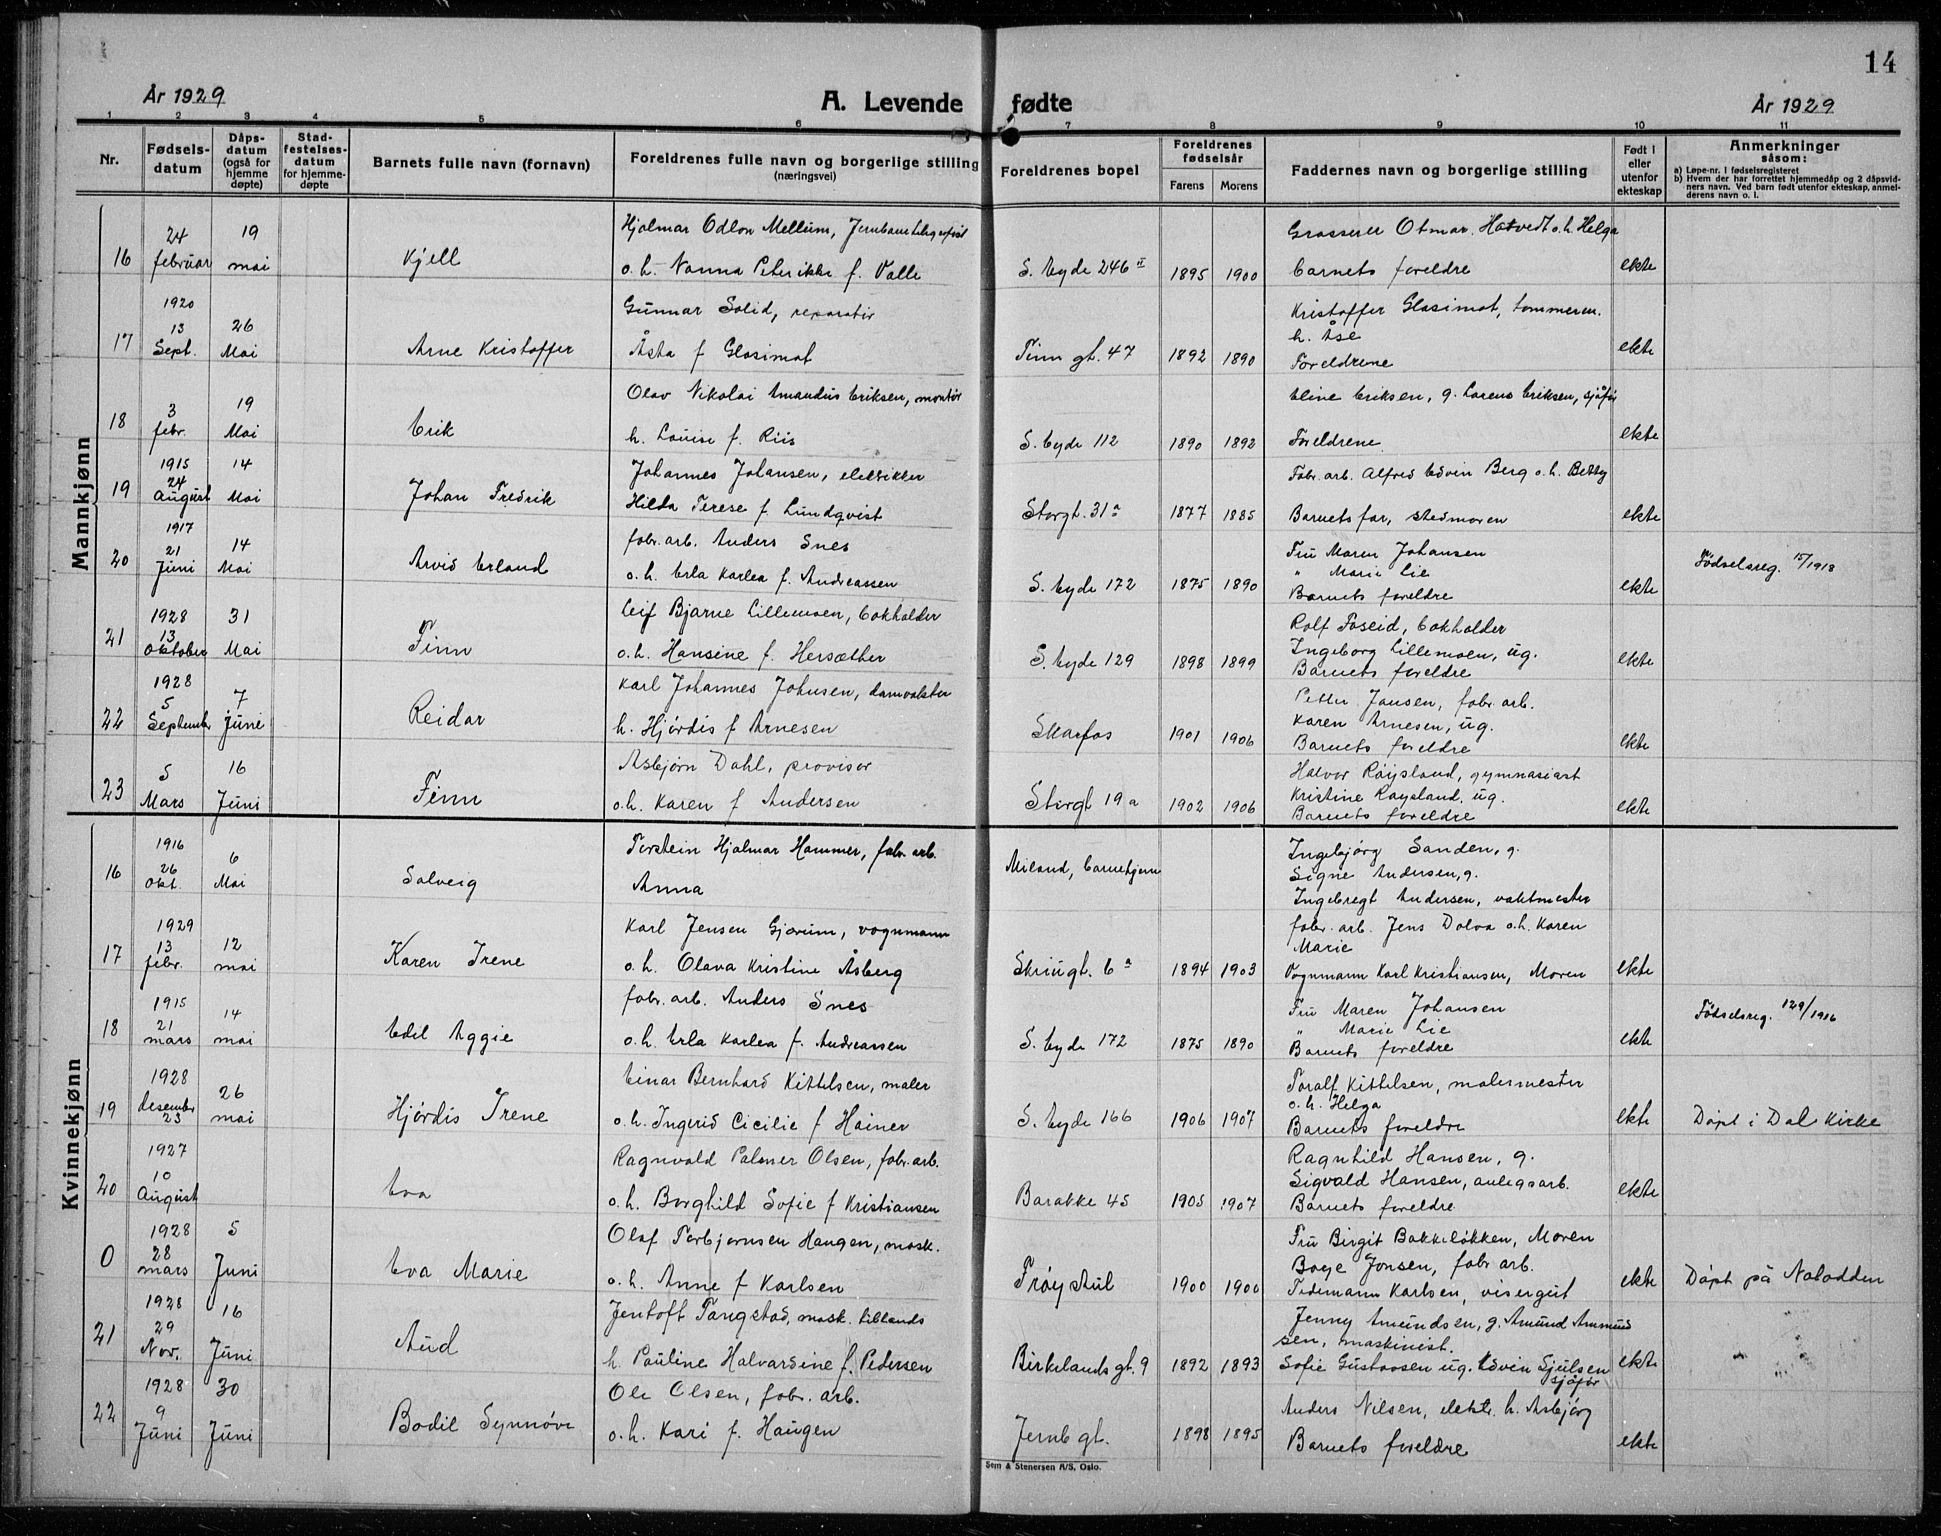 14
År 1929
A. Levende fødte
År 1929
1 2 3 4 5 6 7 8 9 10 11
Nr.
Fødsels-
datum
Dåps-
datum
(også for
hjemme
døpte)
Stad-
festelses-
datum
for hjemme-
døpte
Barnets fulle navn (fornavn)
Foreldrenes fulle navn og borgerlige stilling
(næringsvei)
Foreldrenes bopel
Foreldrenes
fødselsår
Farens Morens
Faddernes navn og borgerlige stilling
Født i
eller
utenfor
ekteskap
Anmerkninger
såsom:
a) Løpe-nr. i fødselsregisteret
b) Hvem der har forrettet hjemmedåp og 2 dåpsvid-
ners navn. Ved barn født utenfor ekteskap, anmel-
derens navn o. l.
Mannkjønn
24 19 Hjalmar Odlon Mellum, Otmar Hotvedt o.h. Helga
16 februar mai Kjell o.h. Nanna Peterikke f. Valle S. Eyde 246 II 1895 1900 barnets foreldre ekte
1920 Gunnar Solid, reparatør Kristoffer Glosimot, tømmerm.
13 26 h. Åse
17 Sept. Mai Arne Kristoffer Åsta f Glosimot Tinn gt. 47 1892 1890 Foreldrene ekte
3 19 Olav Nikolai Amandus Eriksen, montør Eline Eriksen, g. Lorens Eriksen, sjåfør
18 febr. Mai Erik h. Louise f. Riis S. Eyde 112 1890 1892 Foreldrene ekte
1915 14 Johannes Johansen, elektriker Fabr. arb. Alfred Edvin Berg o.h. Betty
24
19 August Mai Johan Fredrik Hilda Terese f. Lundqvist Storgt. 31a 1877 1885 Barnets far, stedmoren ekte
1917 fabr. arb. Anders Snes Fru Maren Johansen
21 14 " Marie Lie Fødselsreg. 15/1918
20 Juni Mai Arvid Erland o.h. Erla Karlea f. Andreassen S. Eyde 172 1875 1890 Barnets foreldre ekte
1928 31 Leif Bjarne Lillemoen, bokholder Rolf Foseid, bokholder
13 Ingeborg Lillemoen, ug.
21 Oktober Mai Finn o.h. Hansine f. Hersæther S. Eyde 129 1898 1899 Barnets foreldre ekte
1928 7 Karl Johannes Johnsen, damvokter Petter Jansen, fabr. arb.
5 Karen Arnesen, ug.
22 Septembr juni Reidar h. Hjørdis f Arnesen Skarfos 1901 1906 Barnets foreldre ekte
5 16 Asbjørn Dahl, provisor Halvor Røysland, gymnasiast
Kristine Røysland, ug.
23 Mars Juni Finn o.h. Karen f Andersen Storgt 19a 1902 1906 Barnets foreldre ekte
Kvinnekjønn
1916 Torstein Hjalmar Hammer, fabr. arb. Ingebjørg Sanden, g.
26 6 Miland, barnehjem Signe Andersen, g.
16 Okt. Mai Solveig Anna Ingebregt Andersen, vaktmester
1929 Karl Jensen Gjærum, vognmann fabr. arb. Jens Dolva o.h. Karen
13 12 Marie
17 febr. mai Karen Irene o.h. Olava Kristine Åsberg Skriugt. 6a 1894 1903 Vognmann Karl Kristiansen, Moren ekte
1915 fabr. arb. Anders Snes Fru Maren Johansen
21 14 " Marie Lie Fødselsreg. 129/1916
18 mars mai Edel Aggie o.h. Erla Karlea f. Andreassen S. Eyde 172 1875 1890 Barnets foreldre ekte
1928 Einar Bernhard Kittelsen, maler Toralf Kittelsen, malermester
desember 26 o.h. Helga
19 23 mai Hjørdis Irene o.h. Ingerid Cicilie f Hainer S. Eyde 166 1906 1907 Barnets foreldre ekte Døpt i Dal Kirke
1927 Ragnvald Palmer Olsen, fabr. arb. Ragnhild Hansen, g.
10 Sigvald Hansen, anlegsarb.
20 August Eva o.h. Borghild Sofie f Kristiansen Barakke 45 1905 1907 Barnets foreldre ekte
1928 5 Olaf Torbjørnsen Haugen, mask. Fru Birgit Bakkeløkken, Moren
28 Boye Jonsen, fabr arb.
0 mars Juni Eva Marie o.h. Anne f Karlsen Frøystul 1900 1900 Tidemann Karlsen, visergut ekte Døpt på Notodden
1928 16 Jentoft Tangstad, mask. Jenny Amundsen, g. Amund Ammund
29 sen, maskinist.
21 Nov. Juni Aud h. Pauline Halvardine f. Pedersen Birkelands gt. 9 1892 1893 Sofie Gustavsen ug. Edvin Sjulsen ekte
sjåfør
1928 30 Ole Olsen, fabr. arb. Anders Nilsen, elektr. h. Asbjørg
9
22 Juni Juni Bodil Synnøve o.h. Kari f. Haugen Jernb gt. 1898 1895 Barnets foreldre ekte
Sem & Stenersen A/S, Oslo.